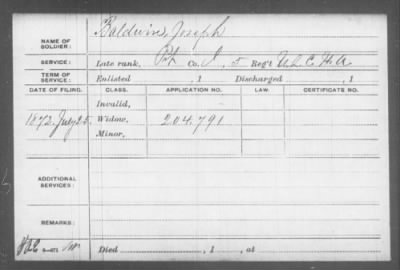 NAME OF SOLDIER: Baldwin, Joseph
SERVICE: Late rank, Pt Co. I, 5 Reg't U.S.C.H.A
TERM OF SERVICE: Enlisted , 1 Discharged , 1
DATE OF FILING. CLASS. APPLICATION NO. LAW. CERTIFICATE NO.
Invalid,
1872. July 25. Widow, 204.791
Minor,
ADDITIONAL SERVICES:
REMARKS:
Died , 1 , at